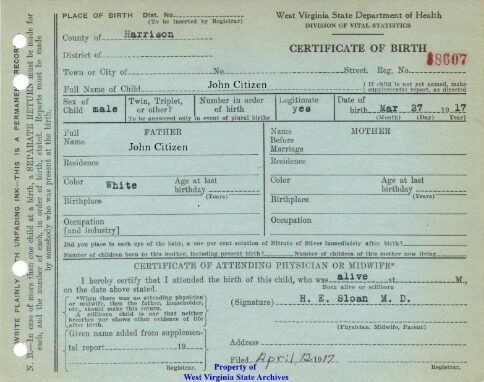 PLACE OF BIRTH Dist. No.
(To be inserted by Registrar)
West Virginia State Department of Health
DIVISION OF VITAL STATISTICS
County of Harrison
CERTIFICATE OF BIRTH
District of
18607
Town or City of No Street. Reg. No.
(To be inserted by Registrar)
Full Name of Child John Citizen
{ If child is not yet named, make
supplemental report, as directed
Sex of Child male
Twin, Triplet, or other?
Number in order of birth
To be answered only in event of plural births
Legitimate yes
Date of birth Mar 27 1917
(Month) (Day) (Year)
FATHER
Full Name John Citizen
Residence
Color White Age at last birthday
(Years)
Birthplace
Occupation
[and industry]
MOTHER
Name Before Marriage
Residence
Color Age at last birthday
(Years)
Birthplace
Occupation
Did you place in each eye of the baby, a one per cent solution of Nitrate of Silver immediately after birth?
Number of children born to this mother, including present birth? Number of children of this mother now living
CERTIFICATE OF ATTENDING PHYSICIAN OR MIDWIFE*
I hereby certify that I attended the birth of this child, who was alive at M.,
Born alive or stillborn
on the date above stated.
*When there was no attending physician
or midwife, then the father, householder,
etc., should make this return.
A stillborn child is one that neither
breathes nor shows other evidence of life
after birth.
(Signature) H. E. Sloan M. D.
(Physician, Midwife, Parent)
Given name added from supplemental report 19
Registrar.
Address
Filed April 12 1917
Registrar.
WRITE PLAINLY WITH UNFADING INK—THIS IS A PERMANENT RECORD
N. B.—In case of more than one child at a birth, a SEPARATE RETURN must be made for
each, and the number of each, in order of birth, stated. Reports must be made
by somebody who was present at the birth.
Property of
West Virginia State Archives